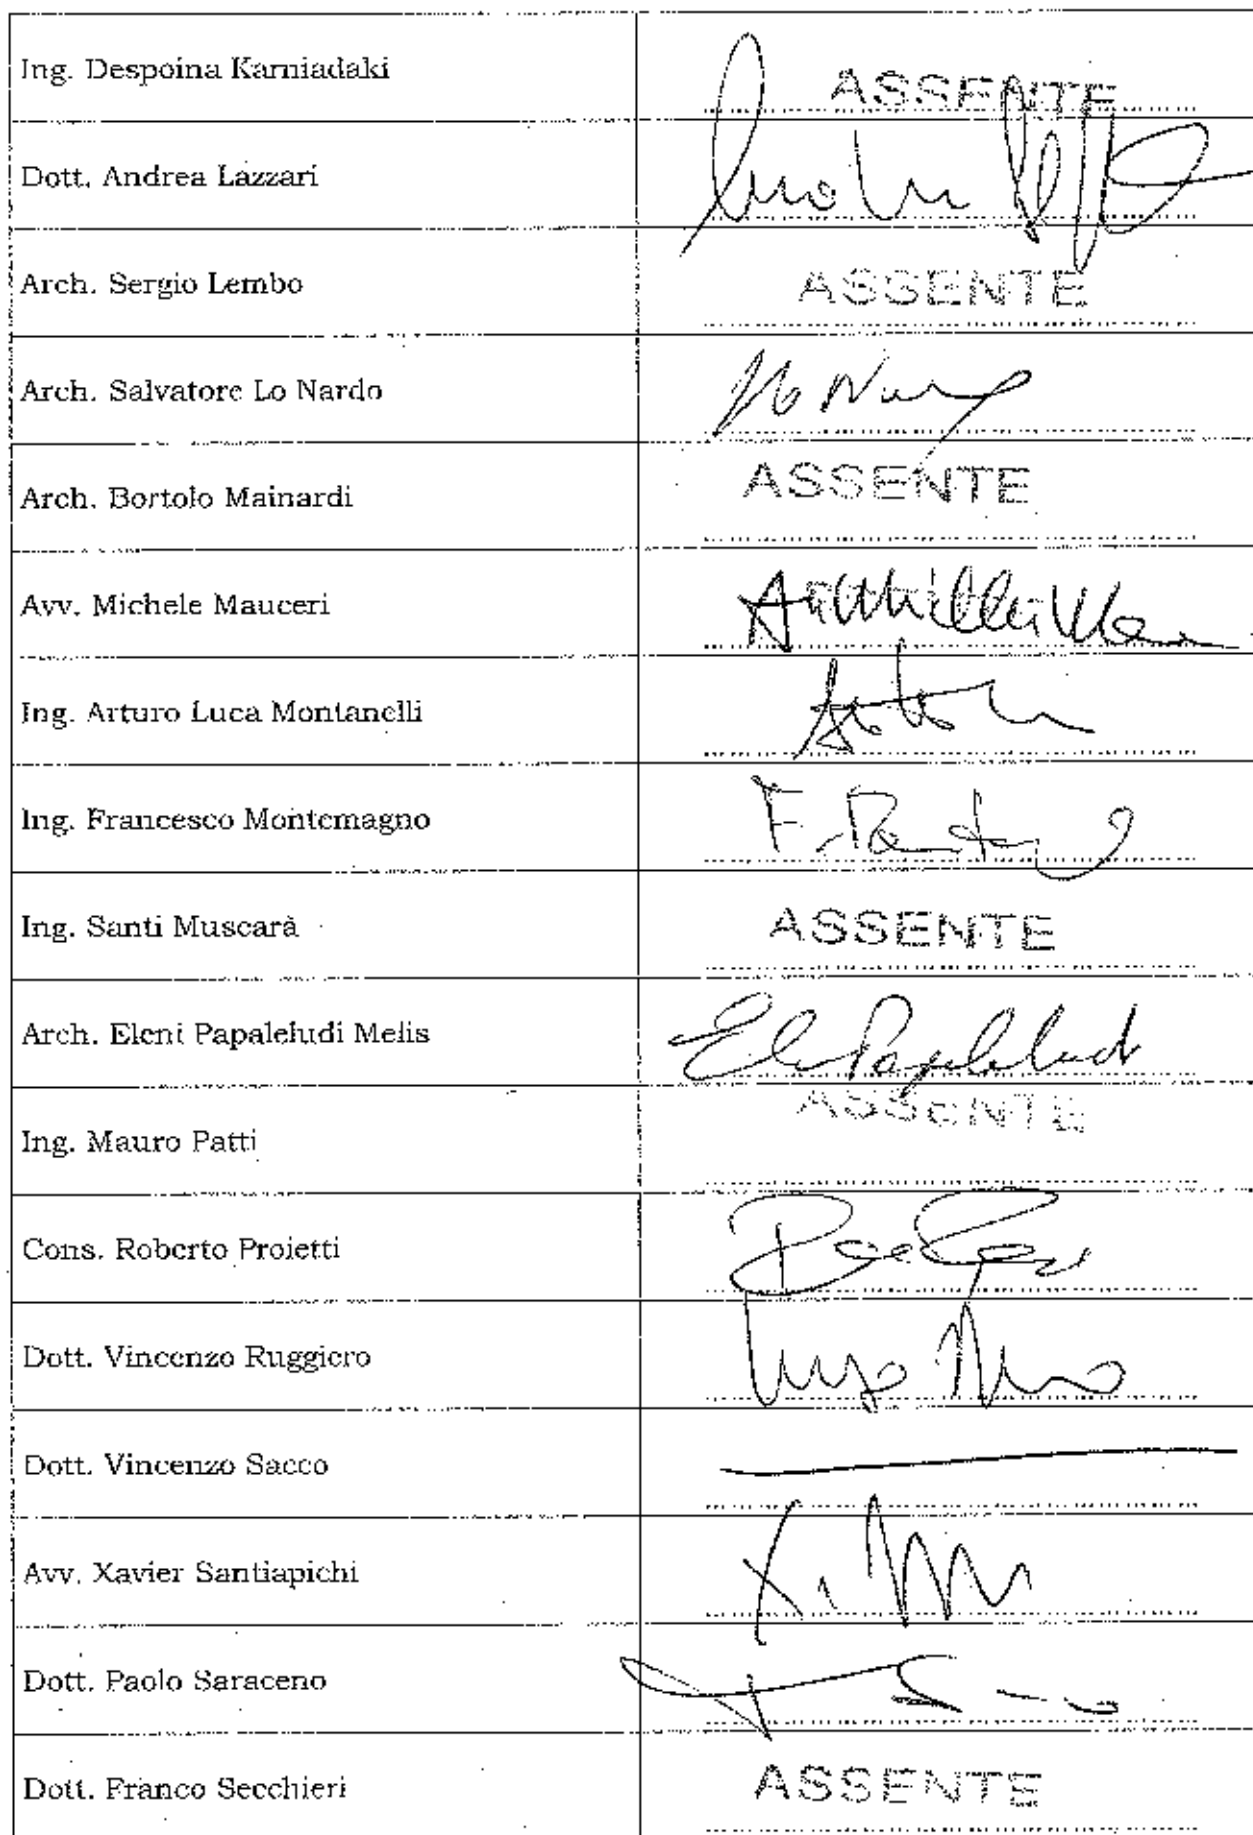 Ing. Despoina Karniadaki
ASSENTE
Dott. Andrea Lazzari
Arch. Sergio Lembo
ASSENTE
Arch. Salvatore Lo Nardo
Arch. Bortolo Mainardi
ASSENTE
Avv. Michele Mauceri
Ing. Arturo Luca Montanelli
Ing. Francesco Montemagno
Ing. Santi Muscarà
ASSENTE
Arch. Eleni Papaleludi Melis
Ing. Mauro Patti
ASSENTE
Cons. Roberto Proietti
Dott. Vincenzo Ruggiero
Dott. Vincenzo Sacco
Avv. Xavier Santiapichi
Dott. Paolo Saraceno
Dott. Franco Secchieri
ASSENTE